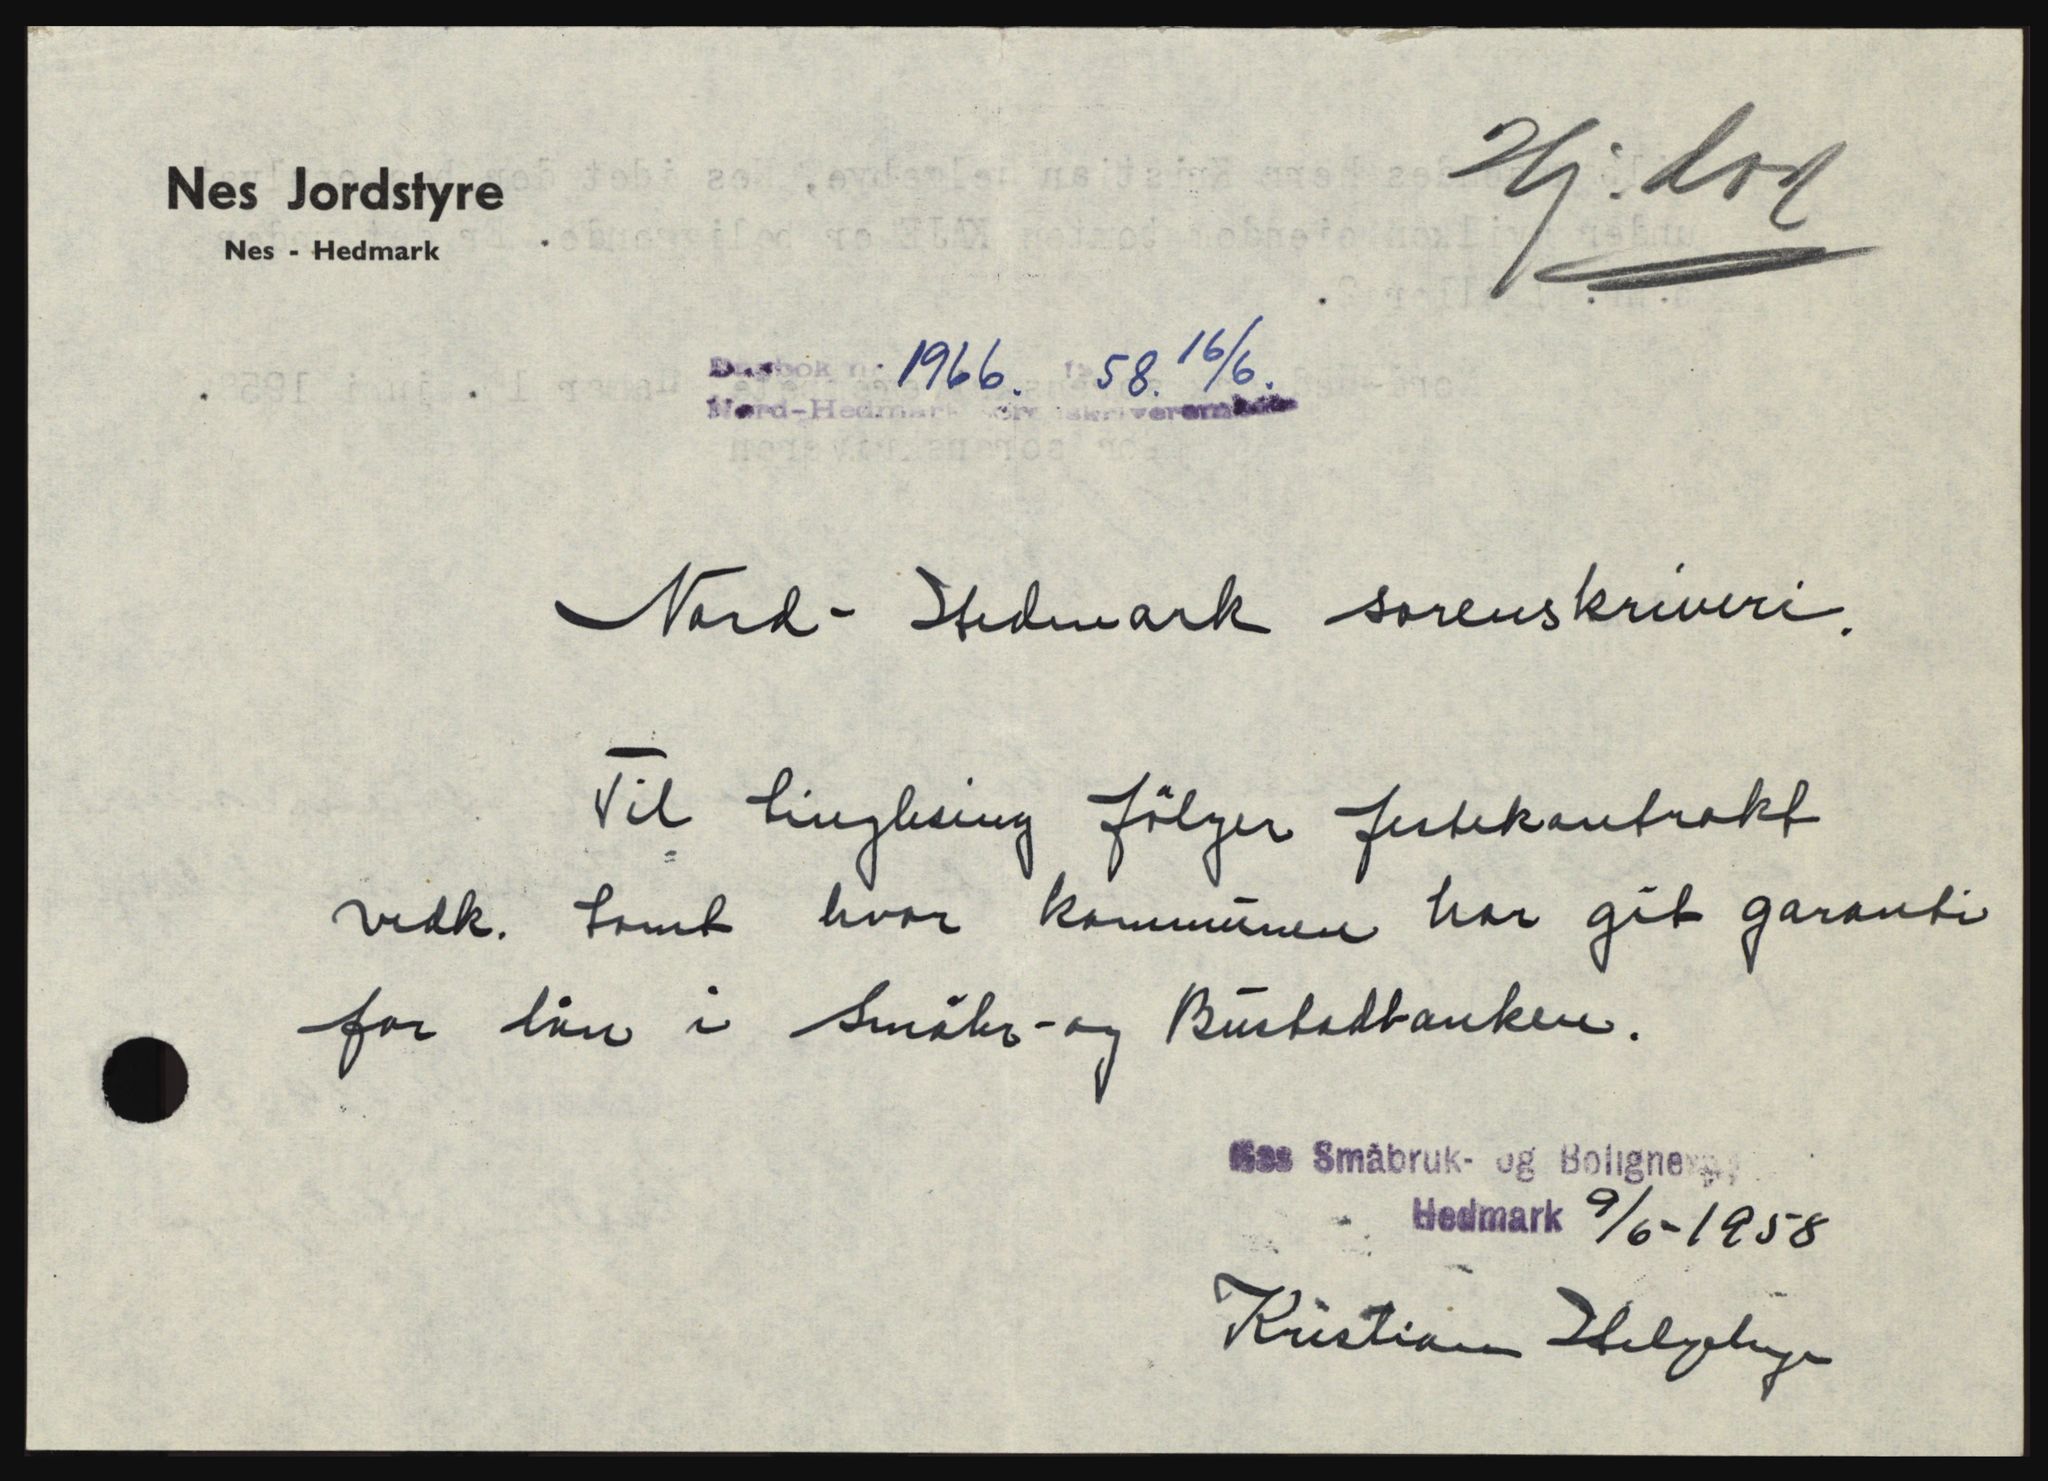 Nes Jordstyre
Nes - Hedmark
Hj. dok
Dagbok nr 1966. 58. 16/6.
Nord-Hedmark sorenskriverembete
Nord-Hedmark sorenskriveri.
Til tinglesing fölger festekontrakt
vedk. tomt hvor kommunen har git garanti
for lån i Småbr- og Bustadbanken.
Nes Småbruk- og
Hedmark 9/6-1958
Kristian Helgebye